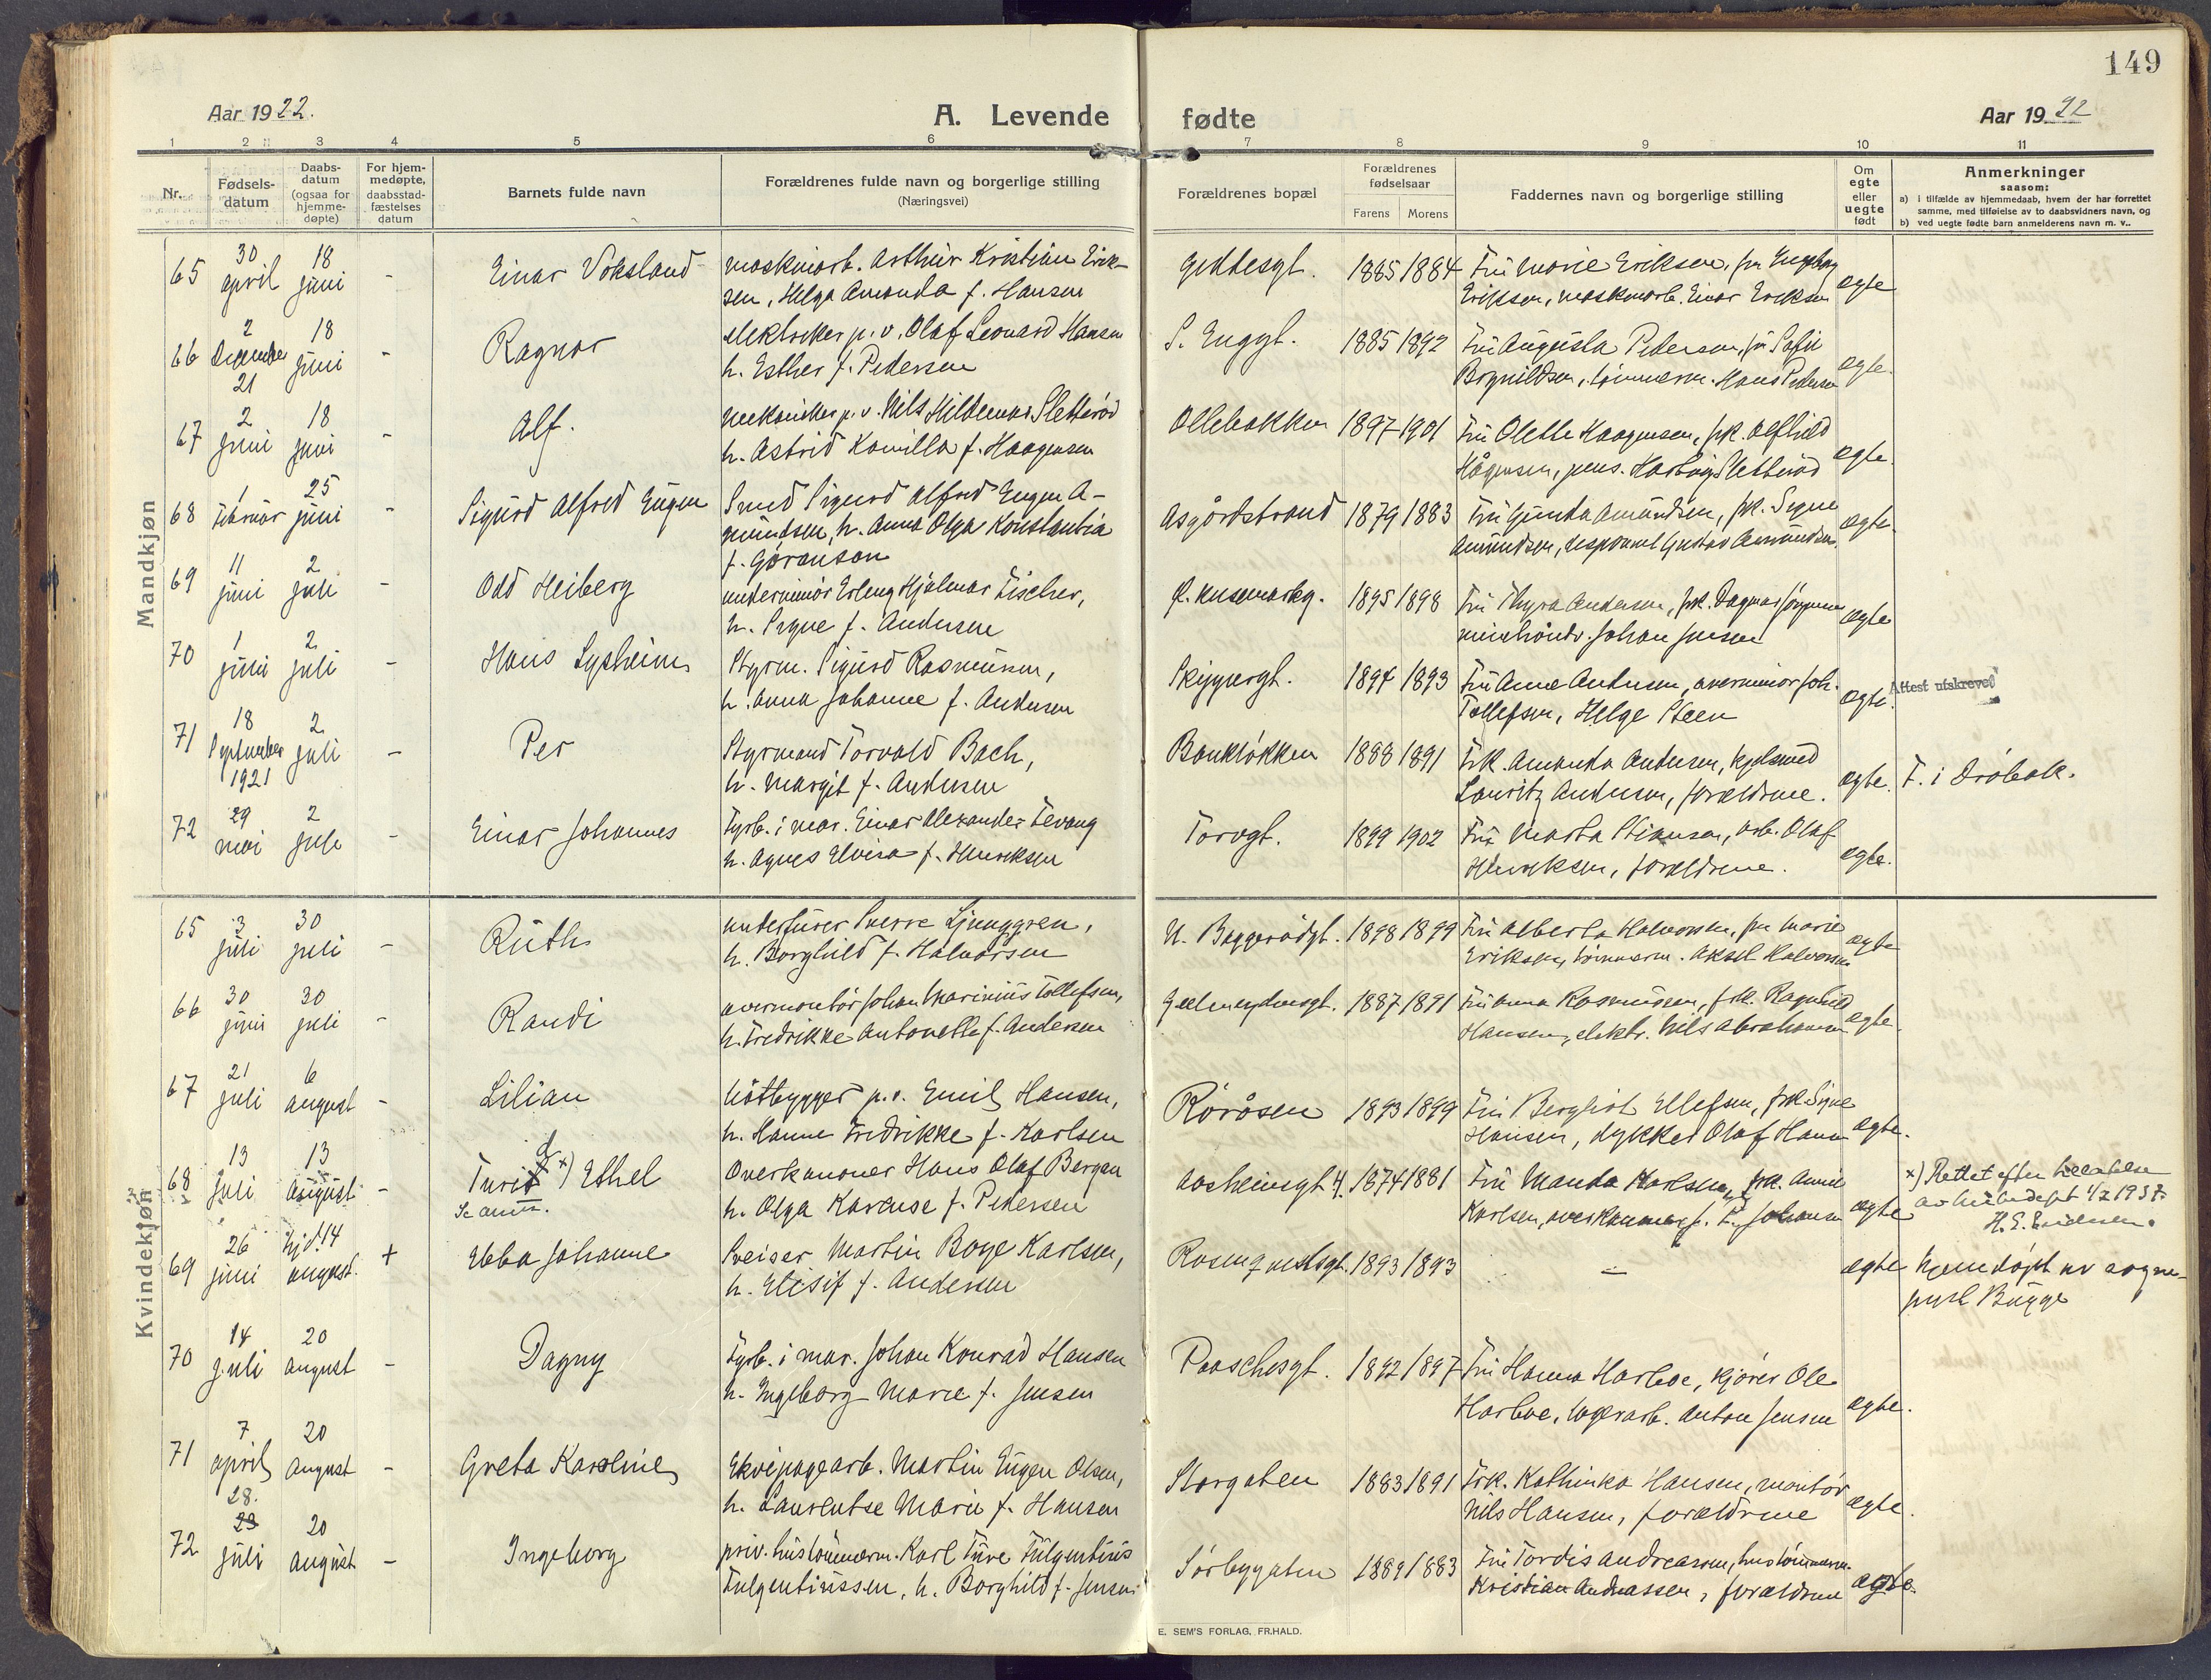 149
Aar 1922.
A. Levende fødte
Aar 1922
1 2 3 4 5 6 7 8 9 10 11
Nr.
Fødsels-
datum
Daabs-
datum
(ogsaa for
hjemme-
døpte)
For hjem-
medøpte,
daabsstad-
fæstelses
datum
Barnets fulde navn
Forældrenes fulde navn og borgerlige stilling
(Næringsvei)
Forældrenes bopæl
Forældrenes
fødselsaar
Farens Morens
Faddernes navn og borgerlige stilling
Om
egte
eller
uegte
født
Anmerkninger
saasom:
a) i tilfælde av hjemmedaab, hvem der har forrettet
samme, med tilføielse av to daabsvidners navn, og
b) ved uegte fødte barn anmelderens navn m. v..
Mandkjøn
65 30 april 18 juni - Einar Voksland maskinarb. Arthur Kristian Erik-
sen, Helga Amanda f. Hansen
1885 1884 Fru Marie Eriksen, fru Ingeborg
Eriksen, maskinarb. Einar Eriksen egte
66 2 December 21 18 juni - Ragnar elektriker p.v. Olaf Leonard Hansen
h. Esther f. Pedersen
S. Enggt. 1885 1892 Fru Augusta Pedersen, fru Sofie
tømmerm. Hans Pedersen egte.
67 2 juni 18 juni - Alf. mekaniker p.v. Nils Hildemar Sletterød
h. Astrid Kamilla f. Haagensen
Ollebakken 1897 1901 Fru Olette Haagensen, frk. Alfhild
Hågensen, pens. Hartvig Sletterød egte.
68 1 Februar 25 juni - Sigurd Alfred Eugen Smed Sigurd Alfred Eugen A-
mundsen, h. Anna Olga Konstantia
f. Göranson
Asgårdstrand 1879 1883 Fru Gunda Amundsen, frk. Signe
Amundsen, Gustav Amundsen. egte.
69 11 juni 2 juli - Odd Heiberg underminør Erling Hjalmar Fischer,
h. Signe f. Andersen
1895 1898 Fru Thyra Andersen, frk. Dagmar Jørgensen
Johan Jensen egte
70 1 juni 2 juli - Hans Lysheim Styrm. Sigurd Rasmussen,
h. Anna Johanne f. Andersen
Skippergt. 1894 1893 Fru Anna Andersen, overminør Joh.
Tollefsen, Helge Steen egte. Attest utskrevet
71 18 September 1921 2 juli - Per Styrmand Torvald Bach,
h. Margit f. Andersen
Bankløkken 1888 1891 Frk. Amanda Andersen, kjelsmed
Lauritz Andersen, forældrene. egte. F. i Drøbak.
72 29 mai 2 juli - Einar Johannes Fyrb. i mar. Einar Alexander Tevang
h. Agnes Elvira f. Henriksen
Torvgt. 1899 1902 Fru Marta Stiansen, arb. Olaf
Henriksen, forældrene. egte.
Kvindekjøn
65 3 juli 30 juli - Ruth underfurer Sverre Ljunggren,
h. Borghild f. Halvorsen
N. Baggerødgt. 1898 1899 Fru Alberta Halvorsen, fru Marie
Eriksen, tømmerm. Aksel Halvorsen egte
66 30 juni 30 juli - Randi overmontør Johan Marinius Tollefsen,
h. Fredrikke Antonette f. Andersen
Gjelmeydensgt. 1887 1891 Fru Anna Rasmussen, frk. Ragnhild
Hansen, elektr. Nils Abrahamsen egte.
67 21 juli 6 august - Lilian båtbygger p.v. Emil Hansen,
h. Hanne Fredrikke f. Karlsen
Røråsen 1893 1899 Fru Bergliot Ellefsen, frk. Signe
Hansen, dykker Olaf Hansen egte.
68 13 juli 13 august - Turid x) Ethel
Se anm.
Overkanoner Hans Olaf Bergan
h. Olga Karense f. Pedersen
Aasheimsgt 4. 1874 1881 Fru Manda Karlsen, frk. Annie
Karlsen, overkanoner J. L. Johansen egte
x) Rettet efter
av 1937.
69 26 juni hjd. 14 august. + Ebba Johanne Sveiser Martin Boye Karlsen,
h. Elisif f. Andersen
Rosenqvistsgt. 1893 1893 - egte hjemdøpt av sogne-
prest Bugge
70 14 juli 20 august - Dagny Fyrb. i mar. Johan Konrad Hansen
h. Ingeborg Marie f. Jensen
Paaschesgt. 1892 1897 Fru Hanna Harboe, kjører Ole
Harboe, lagerarb. Anton Jensen egte.
71 7 april 20 august - Greta Karoline Ekvipagearb. Martin Eugen Olsen,
h. Laurentse Marie f. Hansen
Storgaten 1883 1891 Frk. Kathinka Hansen, montør
Nils Hansen, forældrene egte.
72 28. 29 juli 20 august - Ingeborg priv. hustømmerm. Karl Ture Fulgentius
Fulgentiussen, h. Borghild f. Jensen
Sørbygaten 1889 1883 Fru Tordis Andreassen, hustømmerm.
Kristian Andreassen, forældrene egte.
E. SEM'S FORLAG, FR.HALD.